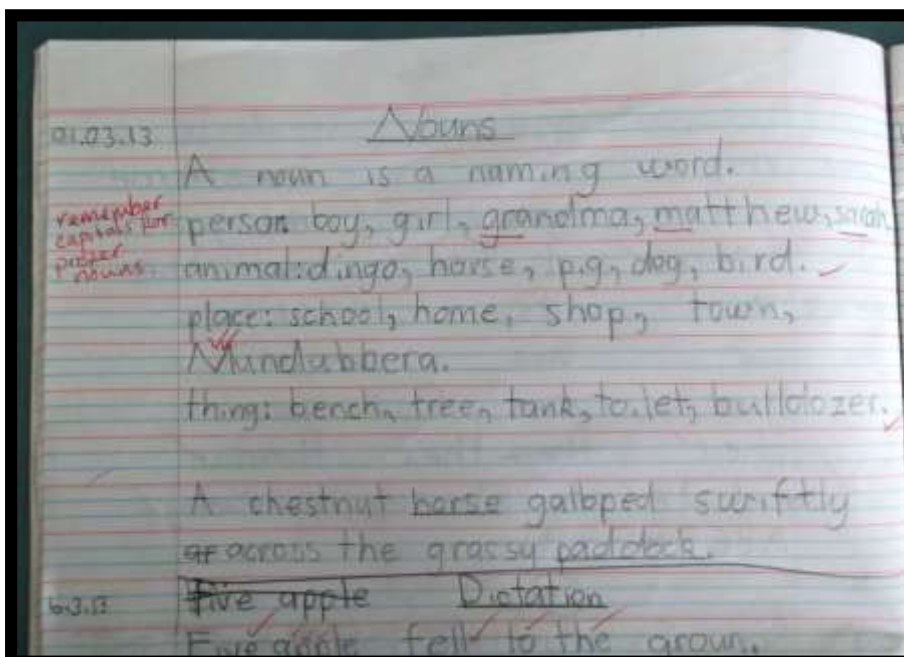 01.03.13 Nouns
A noun is a naming word.
remember
capitals for
proper
nouns.
person: boy, girl, grandma, matthew, sarah
animal: dingo, horse, pig, dog, bird.
place: school, home, shop, town,
Mundubbera.
thing: bench, tree, tank, toilet, bulldozer.
A chestnut horse galloped swiftly
across the grassy paddock.
6.3.13 Five apple Dictation
Five apple fell to the groun.